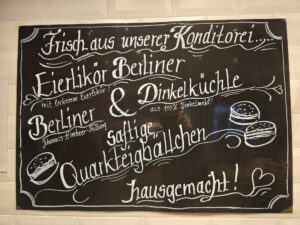 Frisch aus unserer Konditorei.....
Eierlikör Berliner
mit leckerem Eierlikör
Berliner & Dinkelküchle
Johannis-Himbeer-Füllung
aus 100% Dinkelmehl!
saftige
Quarkteigbällchen
hausgemacht!